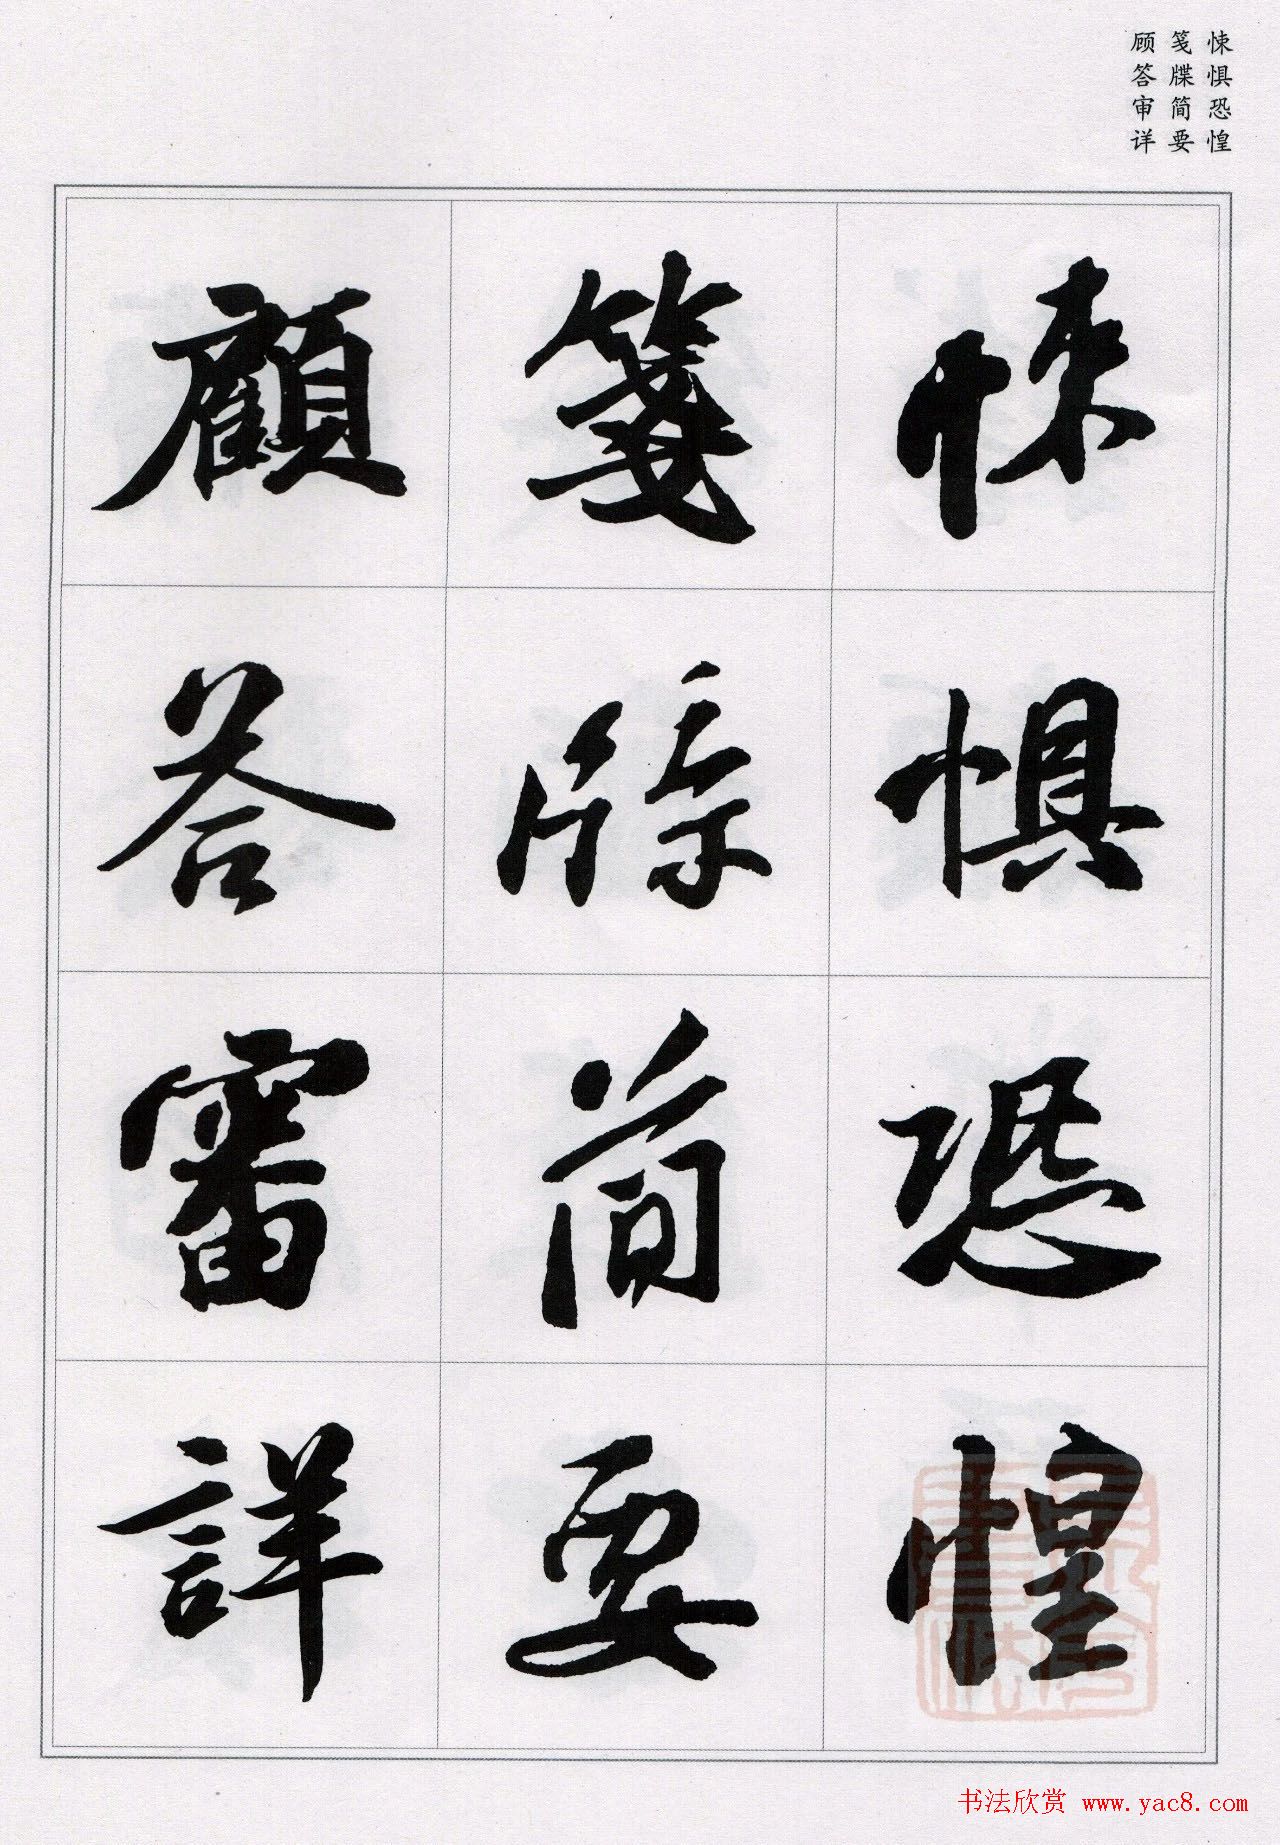 悚惧恐惶
笺牒简要
顾答审详
悚懼恐惶
箋牒简要
顧答審詳
书法欣赏 www.yac8.com